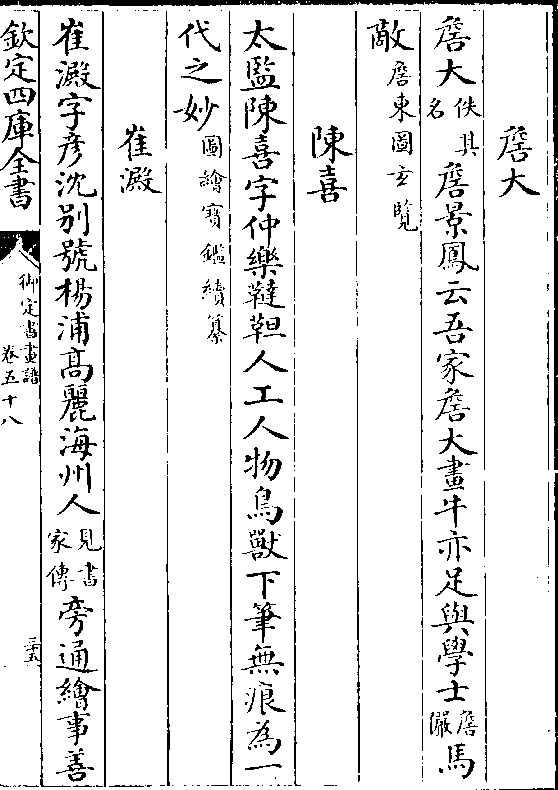 詹大
詹大佚其名詹景鳳云吾家詹大畫牛亦足與學士詹儼馬
敵詹東圖𤣥覽
陳喜
太監陳喜字仲樂韃靼人工人物鳥獸下筆無痕為一
代之妙圖繪寶鑑續纂
崔澱
崔澱字彥沈別號楊浦高麗海州人見書家傳旁通繪事善
欽定四庫全書
御定書畫譜
卷五十八
三十五